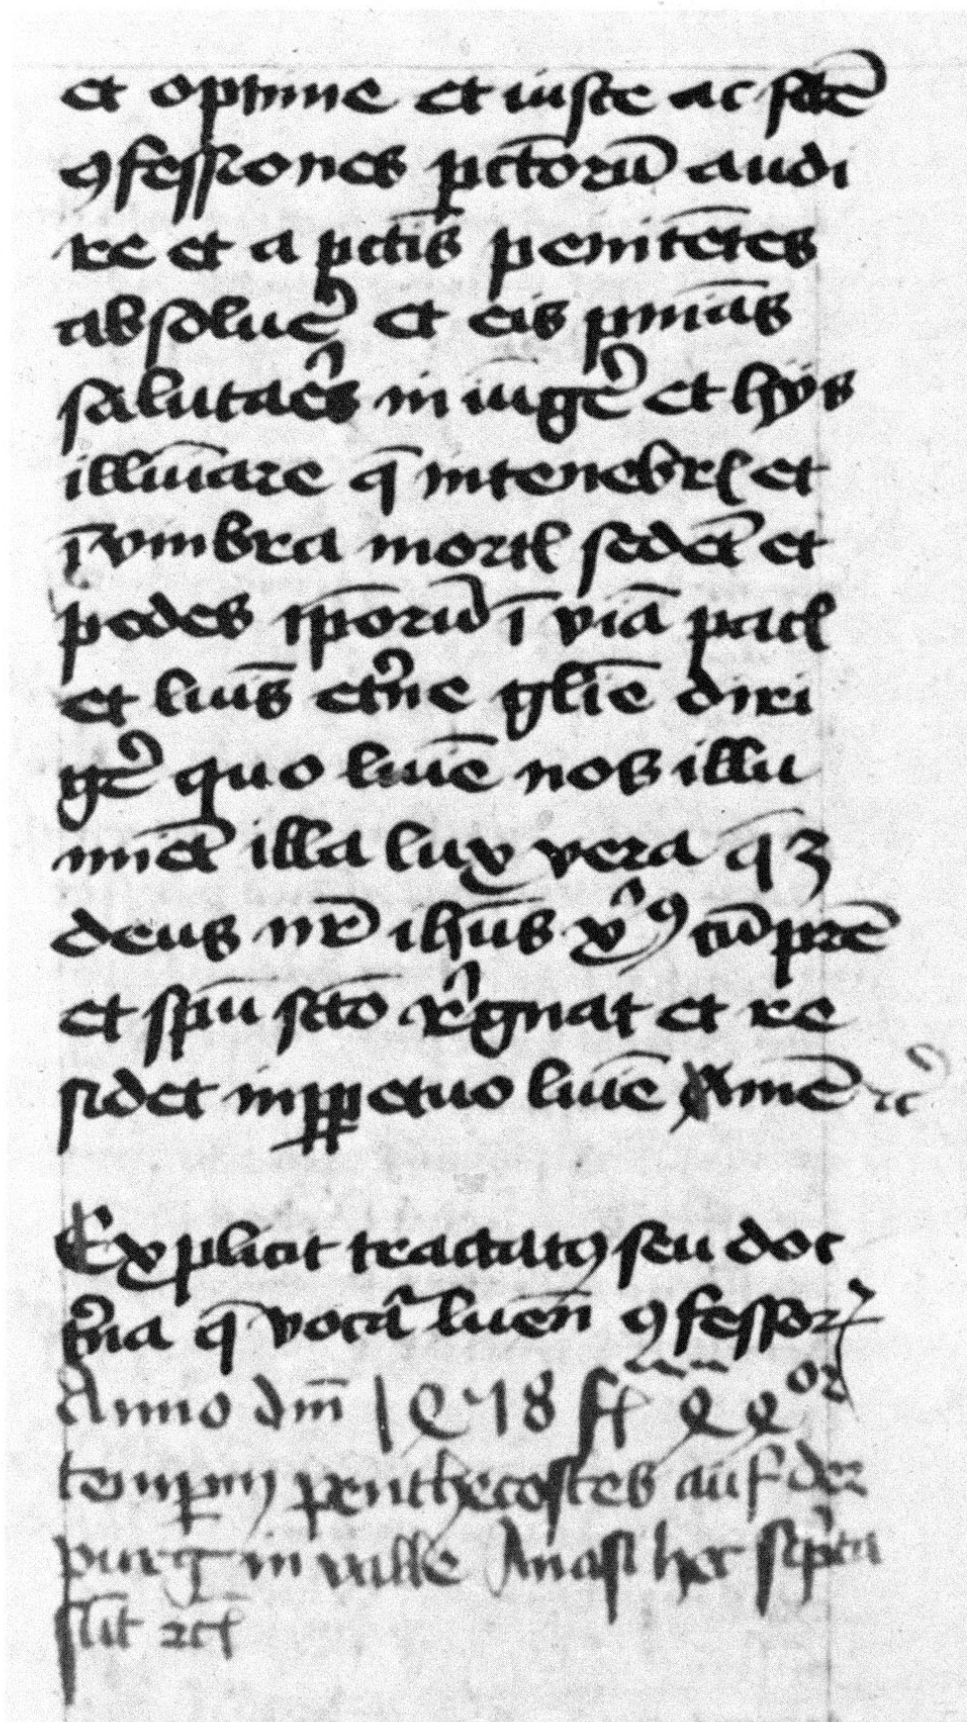 et optime et iuste ac sctē
ꝯfessiones pctōrū audi
re et a pctīs penitētes
absoluēꝰ et eis pnīas
salutaēs iniūgēꝰ et hijs
illūiare q̄ in tenebrꝭ et
ī vmbra mortꝭ sedēt et
pedes ip̄orū ī viā pacꝭ
et luīs et̉ne gl̄ie diri
gē quo luīe nos illu
mīet illa lux vera q̄ ꝫ
deus nr̄ ihūs xꝰ cū prē
et sp̄u sctō rgnat et re
sidet in ꝑpetuo luīe Amē ⁊c̉
Explicit tractatꝯ seu doc
t̉na q̄ vocāt luēn ꝯfessoꝝ
Anno dm̄ 1478 ff
temꝑm penthecostes auf der
purg in valle Anasi hec sc̉pta
s̄lt ⁊cꝭ